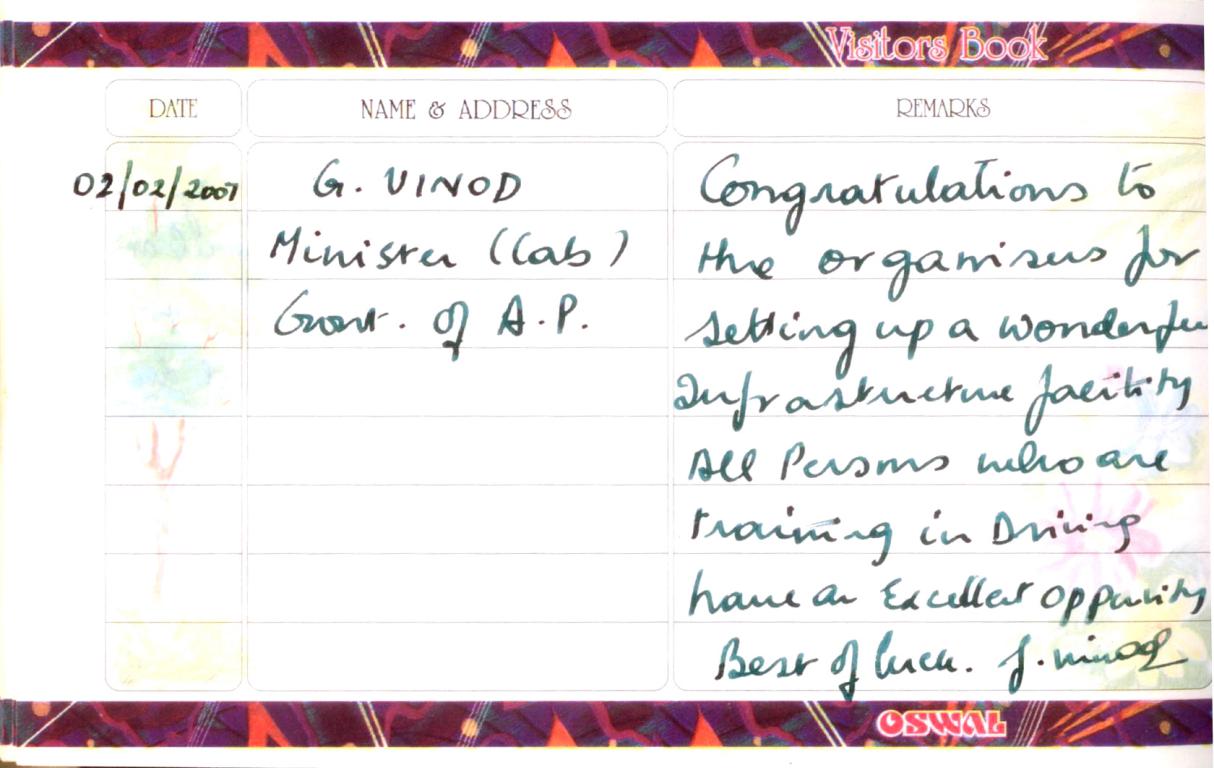 Visitors Book
DATE NAME & ADDRESS REMARKS
02/02/2007 G. VINOD Congratulations to
Minister (Lab) the organisers for
Govt. of A.P. setting up a wonderful
Infrastructure facility
All Persons who are
training in Driving
have an Excellent oppurnity
Best of luck. G. Vinod
OSWAL